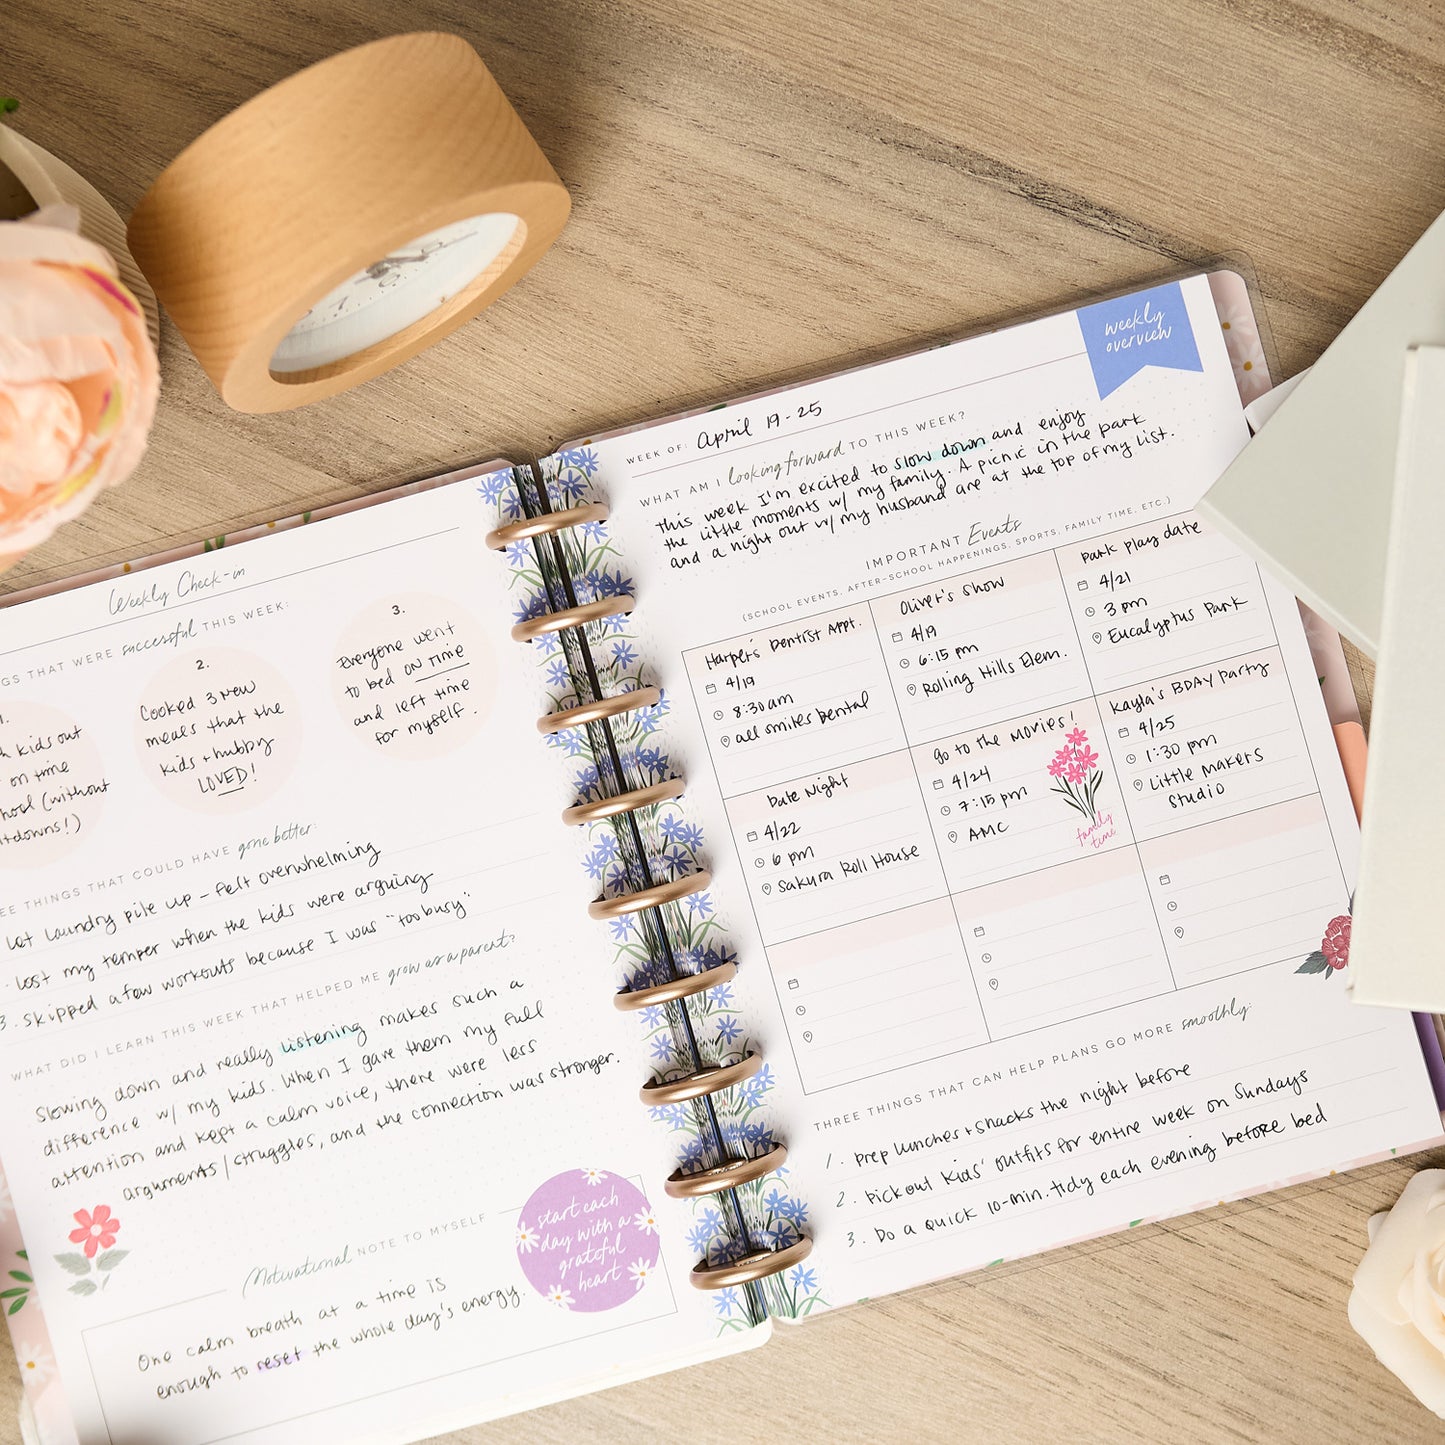 Weekly Check-in
THAT WERE successful THIS WEEK:
1.
kids out
on time
(without
2.
Cooked 3 new
meals that the
kids + hubby
LOVED!
3.
Everyone went
to bed ON TIME
and left time
for myself.
THINGS THAT COULD HAVE gone better:
Let laundry pile up - felt overwhelming
Lost my temper when the kids were arguing
3. Skipped a few workouts because I was "too busy"
WHAT DID I LEARN THIS WEEK THAT HELPED ME grow as a parent?
Slowing down and really listening makes such a
difference w/ my kids. When I gave them my full
attention and kept a calm voice, there were less
arguments/struggles, and the connection was stronger.
Motivational NOTE TO MYSELF
start each
day with a
grateful
heart
One calm breath at a time is
enough to reset the whole day's energy.
weekly
overview
WEEK OF: April 19-25
WHAT AM I looking forward TO THIS WEEK?
This week I'm excited to slow down and enjoy
the little moments w/ my family. A picnic in the park
and a night out w/ my husband are at the top of my list.
IMPORTANT Events
(SCHOOL EVENTS, AFTER-SCHOOL HAPPENINGS, SPORTS, FAMILY TIME, ETC.)
Harper's Dentist Appt.
4/19
8:30am
All Smiles Dental
Oliver's Show
4/19
6:15 pm
Rolling Hills Elem.
Park play date
4/21
3 pm
Eucalyptus Park
Date Night
4/22
6 pm
Sakura Roll House
Go to the Movies!
4/24
7:15 pm
AMC
family
time
Kayla's BDAY Party
4/25
1:30 pm
Little Makers
Studio
THREE THINGS THAT CAN HELP PLANS GO MORE smoothly:
1. Prep lunches + snacks the night before
2. Pick out kids' outfits for entire week on Sundays
3. Do a quick 10-min. tidy each evening before bed